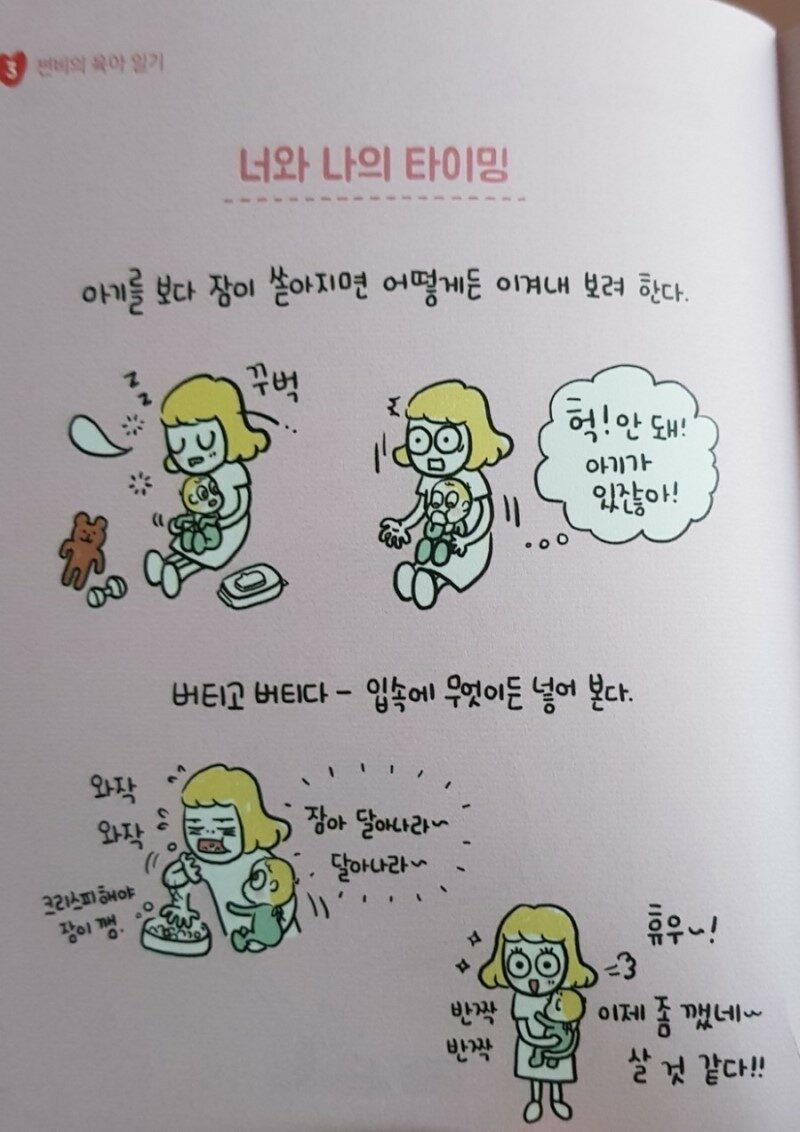 3 번비의 육아 일기
너와 나의 타이밍
아기를 보다 잠이 쏟아지면 어떻게든 이겨내 보려 한다.
z z
꾸벅
헉! 안 돼!
아기가
있잖아!
버티고 버티다 - 입속에 무엇이든 넣어 본다.
와작
와작
잠아 달아나라~
달아나라~
크리스피해야
잠이 깸.
휴우~!
반짝
반짝
이제 좀 깼네~
살 것 같다!!